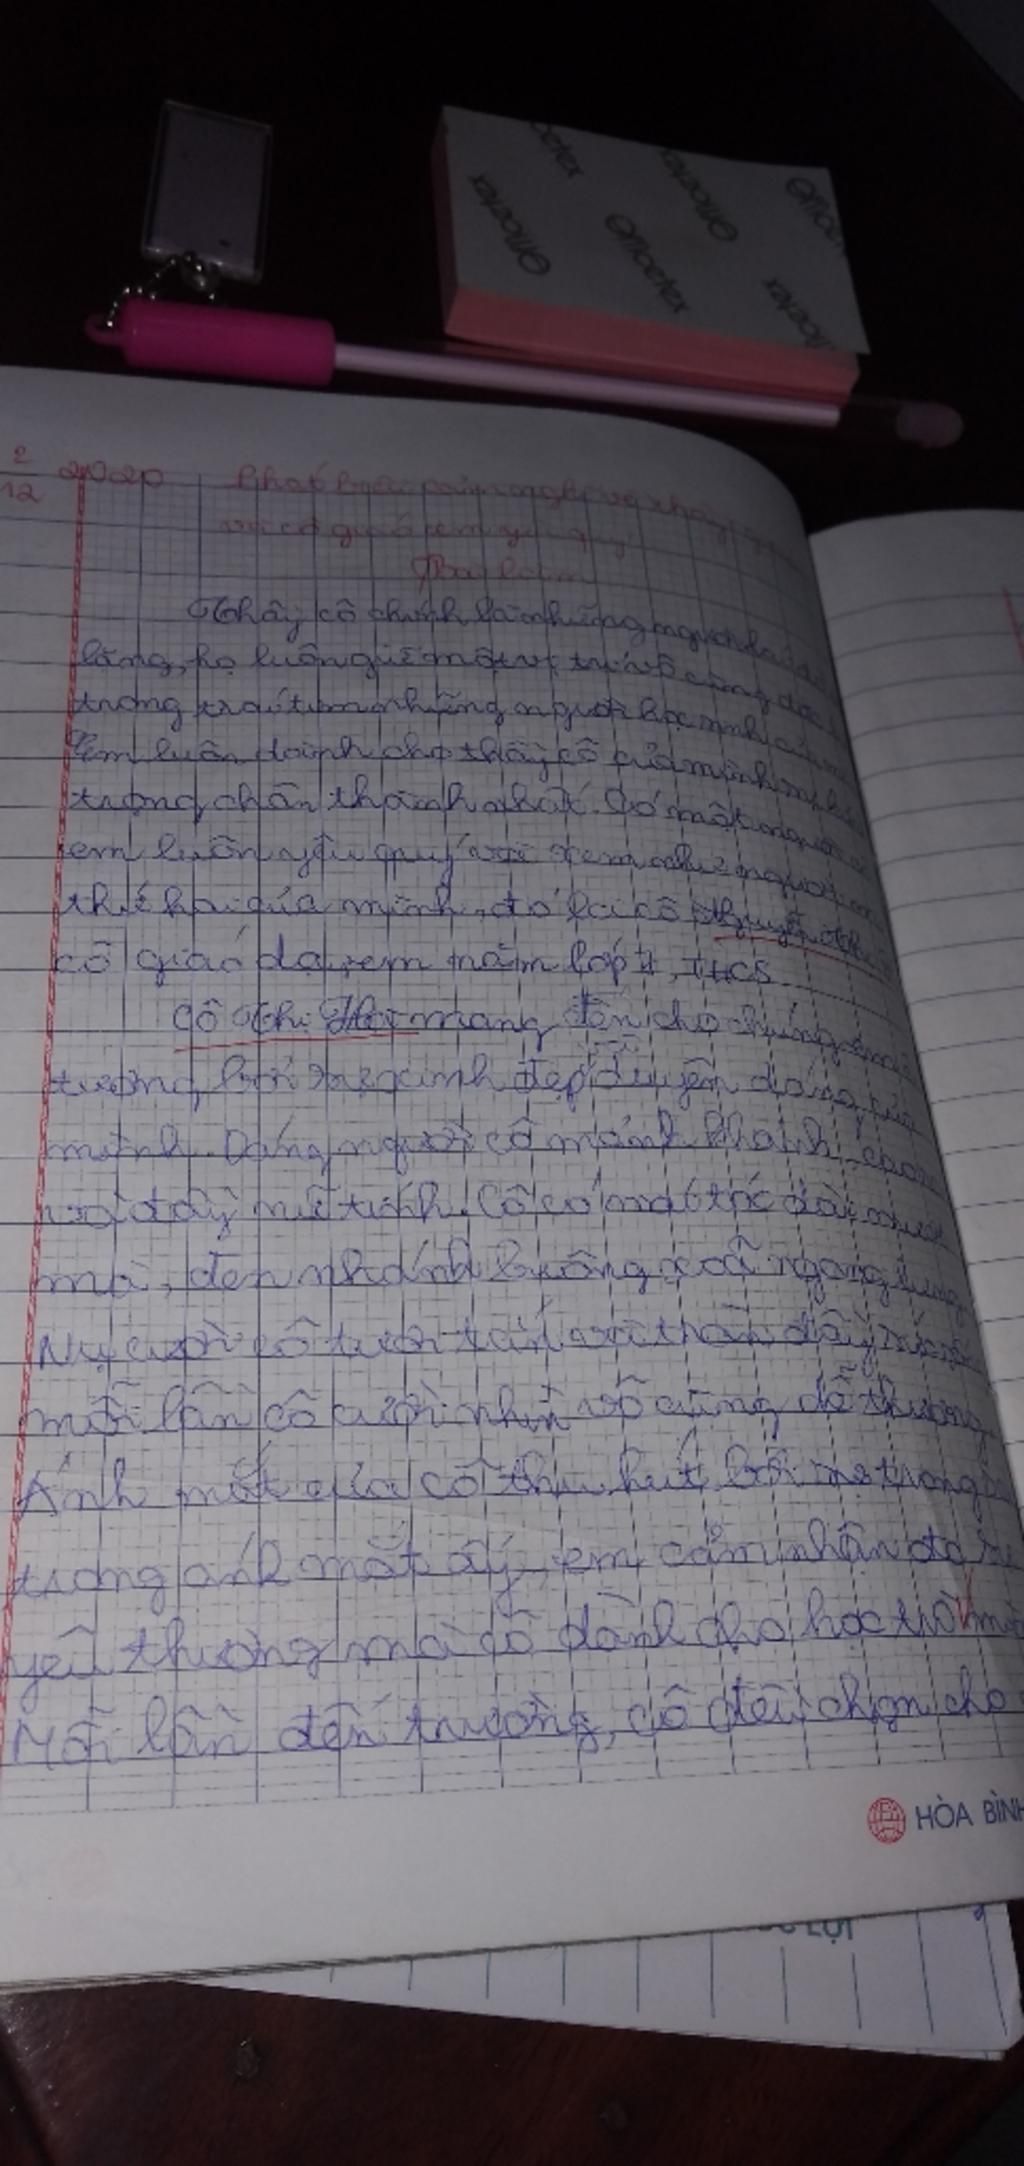 Officetex
Officetex
Officetex
2
12
2020
Phát biểu cảm nghĩ về thầy
cô giáo em yêu quý
Bài làm
Thầy cô chính là những người lái đò
lặng, họ luôn giữ một vị trí vô cùng đặc
trong trái tim những người học sinh của
Em luôn dành cho thầy cô của mình
trọng chân thành nhất. Có một người
em luôn yêu quý và xem như người
thứ hai của mình, đó là cô
cô giáo dạy em năm lớp 7, THCS
Cô mang đến cho chúng em
tượng bởi vẻ xinh đẹp duyên dáng của
mình. Dáng người cô mảnh khảnh, cao
và đầy nữ tính. Cô có mái tóc dài mượt
mà, đen nhánh buông xoã ngang lưng
Nụ cười cô tươi tắn và
mỗi lần cô cười nhìn vô cùng dễ thương
Ánh mắt của cô thu hút bởi
trong ánh mắt ấy, em cảm nhận
yêu thương mà cô dành cho học trò
Mỗi lần đến trường, cô đều chọn cho
HÒA BÌNH
LỢI